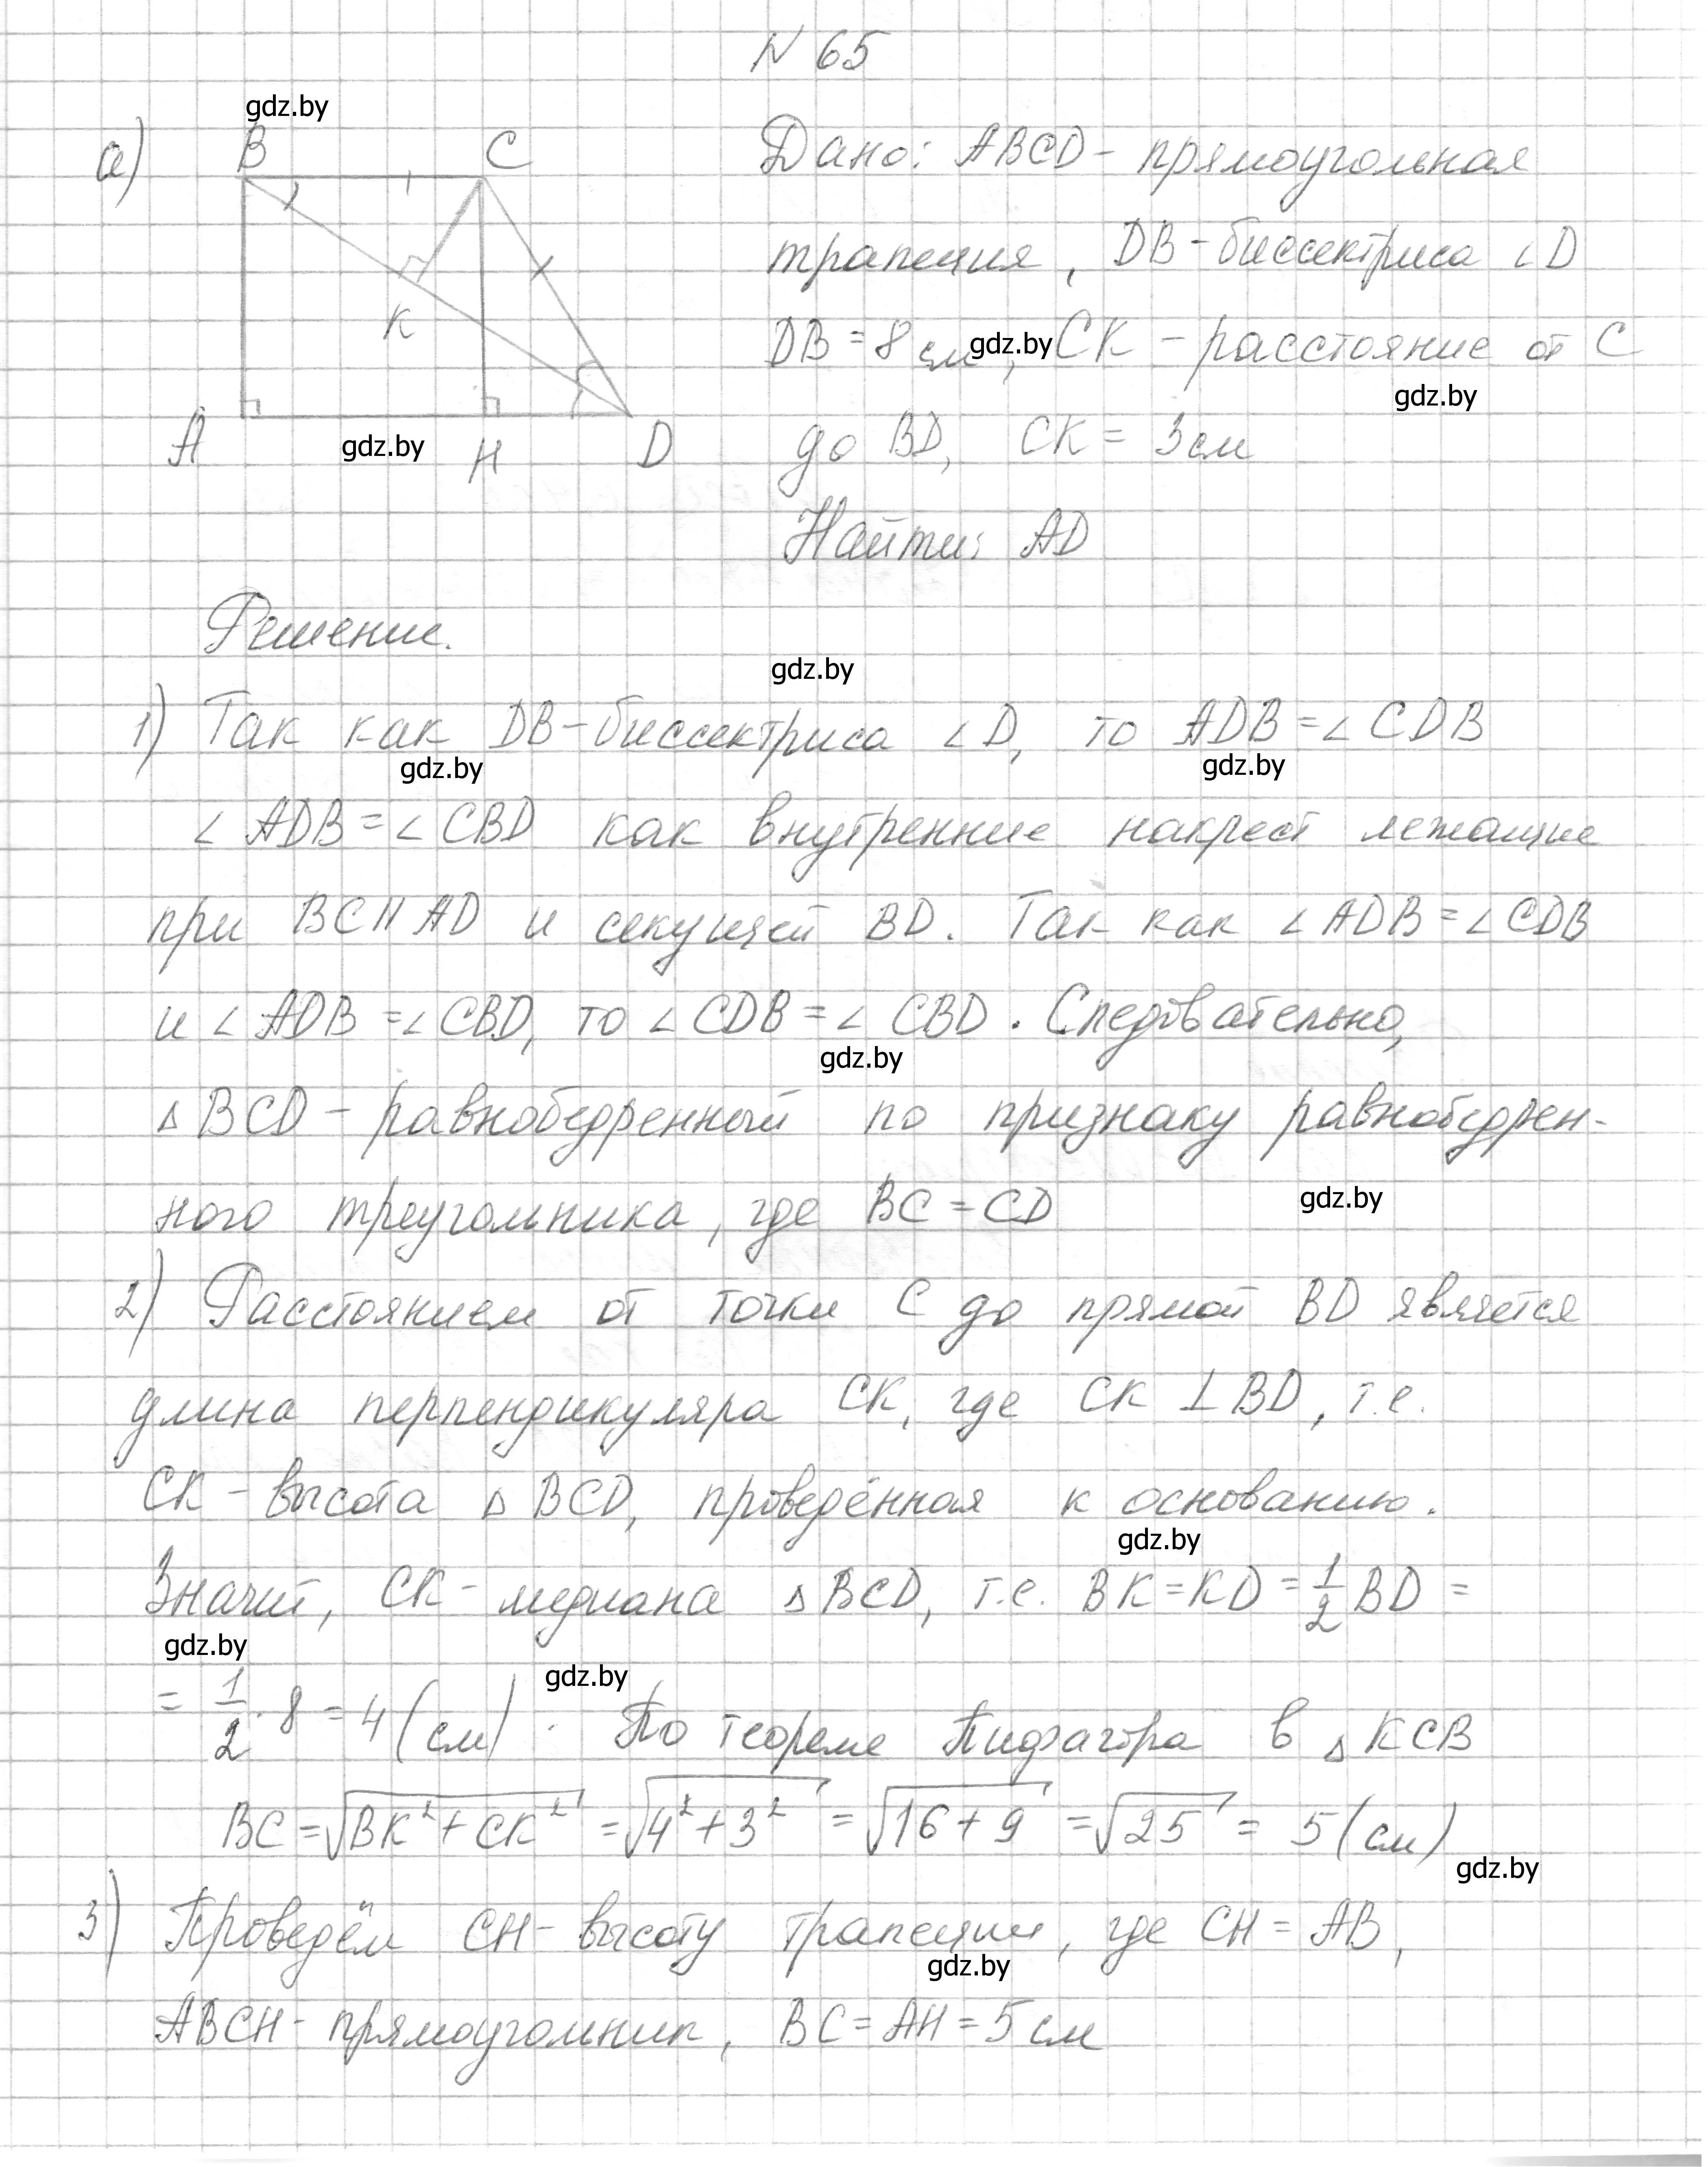 N 65
gdz.by
а)
B
C
K
A
H
D
gdz.by
Дано: ABCD - прямоугольная
трапеция, DB - биссектриса ∠D
DB = 8 см, CK - расстояние от C
gdz.by
gdz.by
до BD, CK = 3 см
Найти: AD
Решение.
gdz.by
1) Так как DB - биссектриса ∠D, то ADB = ∠CDB
gdz.by
gdz.by
∠ADB = ∠CBD как внутренние накрест лежащие
при BC || AD и секущей BD. Так как ∠ADB = ∠CDB
и ∠ADB = ∠CBD, то ∠CDB = ∠CBD. Следовательно,
gdz.by
△BCD - равнобедренный по признаку равнобедрен-
ного треугольника, где BC = CD
gdz.by
2) Расстоянием от точки C до прямой BD является
длина перпендикуляра CK, где CK ⊥ BD, т.е.
CK - высота △BCD, проведённая к основанию.
gdz.by
Значит, CK - медиана △BCD, т.е. BK = KD = 1/2 BD =
gdz.by
gdz.by
= 1/2 · 8 = 4 (см). По теореме Пифагора в △KCB
BC = √BK² + CK² = √4² + 3² = √16 + 9 = √25 = 5 (см)
gdz.by
3) Проведём CH - высоту трапеции, где CH = AB,
gdz.by
ABCH - прямоугольник, BC = AH = 5 см